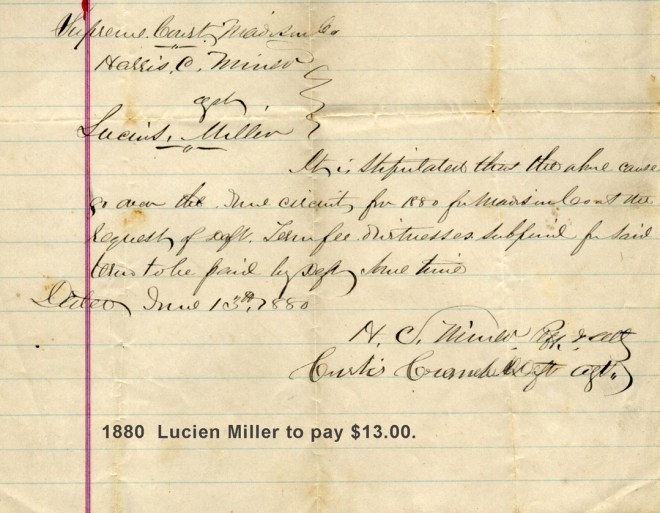 Supreme Court Madison Co
Harris, C. Miner
agst
Lucius, Miller
It is stipulated that the above cause
go over the June circuit, for 1880 for Madison Co at the
request of Deft. Term fee witnesses subpoened for said
term to be paid by Deft some time
Dated June 13th, 1880
H. C. Miner Plff &
Curtis Deft atty
1880 Lucien Miller to pay $13.00.